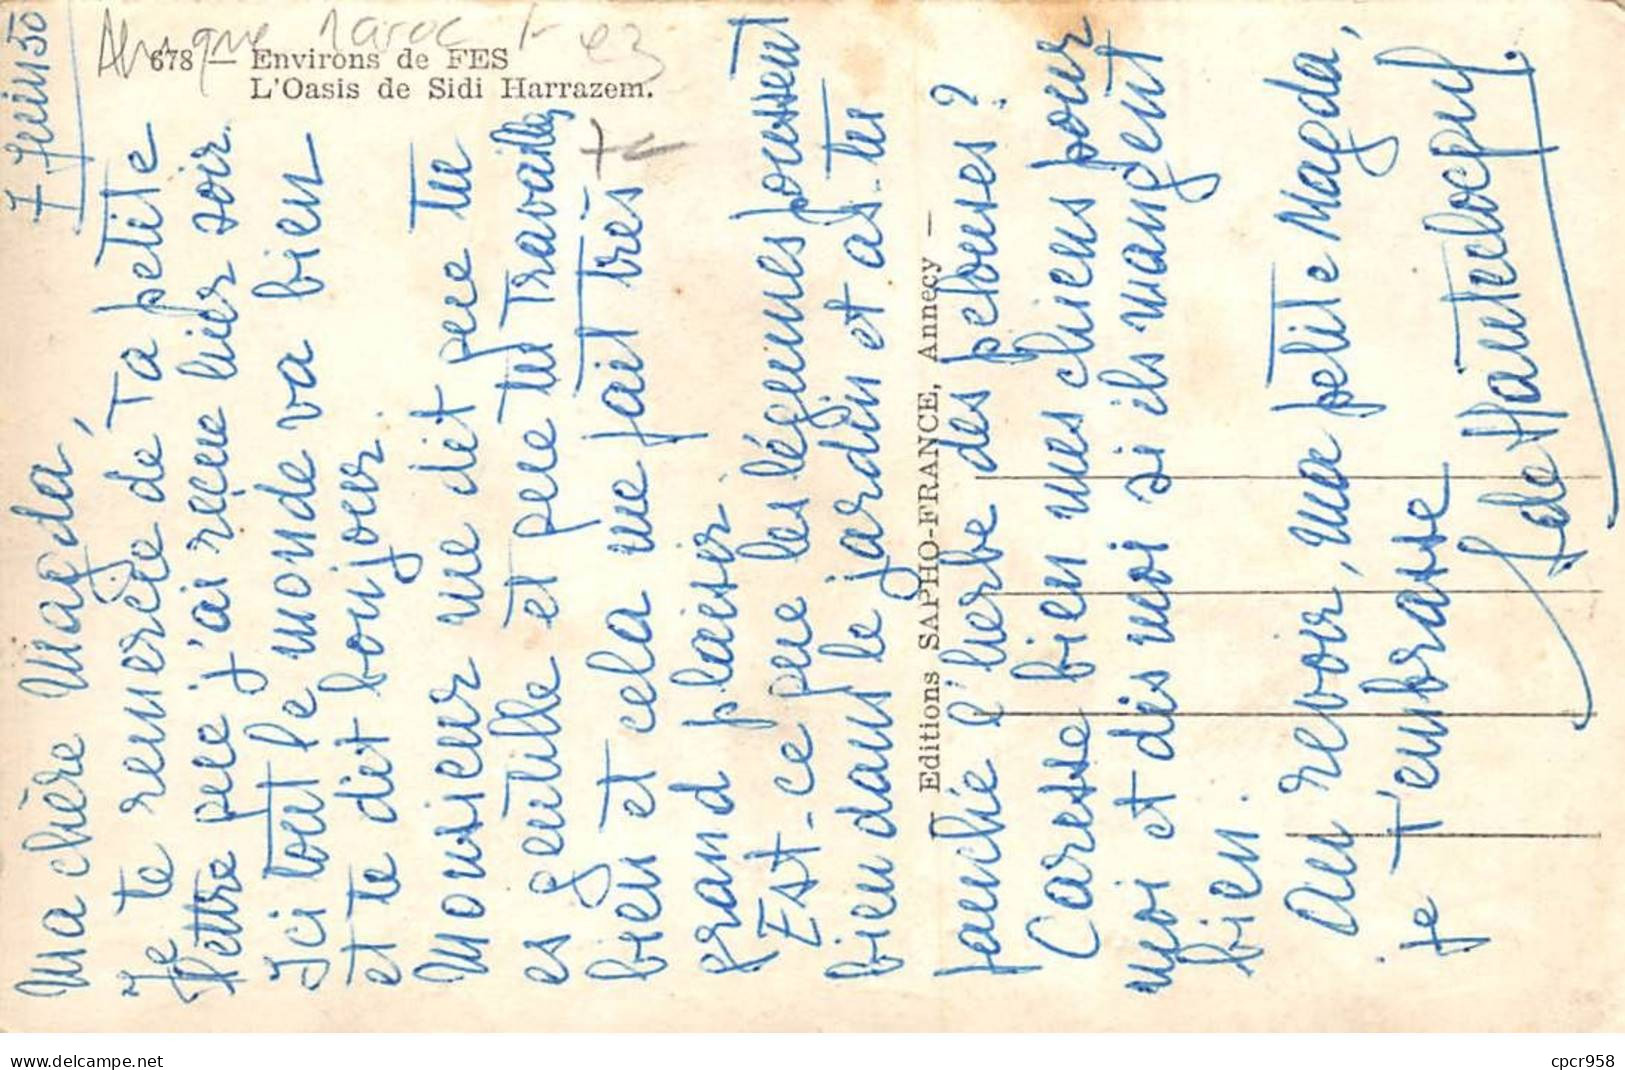 678 — Environs de FES
L'Oasis de Sidi Harrazem.
Maroc
7 Juin 50
Ma chère Magda,
Je te remercie de ta petite
lettre que j'ai reçue hier soir.
Ici tout le monde va bien
et te dit bonjour.
Monsieur me dit que tu
es gentille et que tu travailles
bien et cela me fait très
grand plaisir.
Est-ce que les légumes poussent
bien dans le jardin et as-tu
fauché l'herbe des pelouses ?
Caresse bien mes chiens pour
moi et dis moi si ils mangent
bien.
Au revoir, ma petite Magda,
je t'embrasse
de Hauteclocque.
— Editions SAPHO-FRANCE, Annecy —
cpcr958